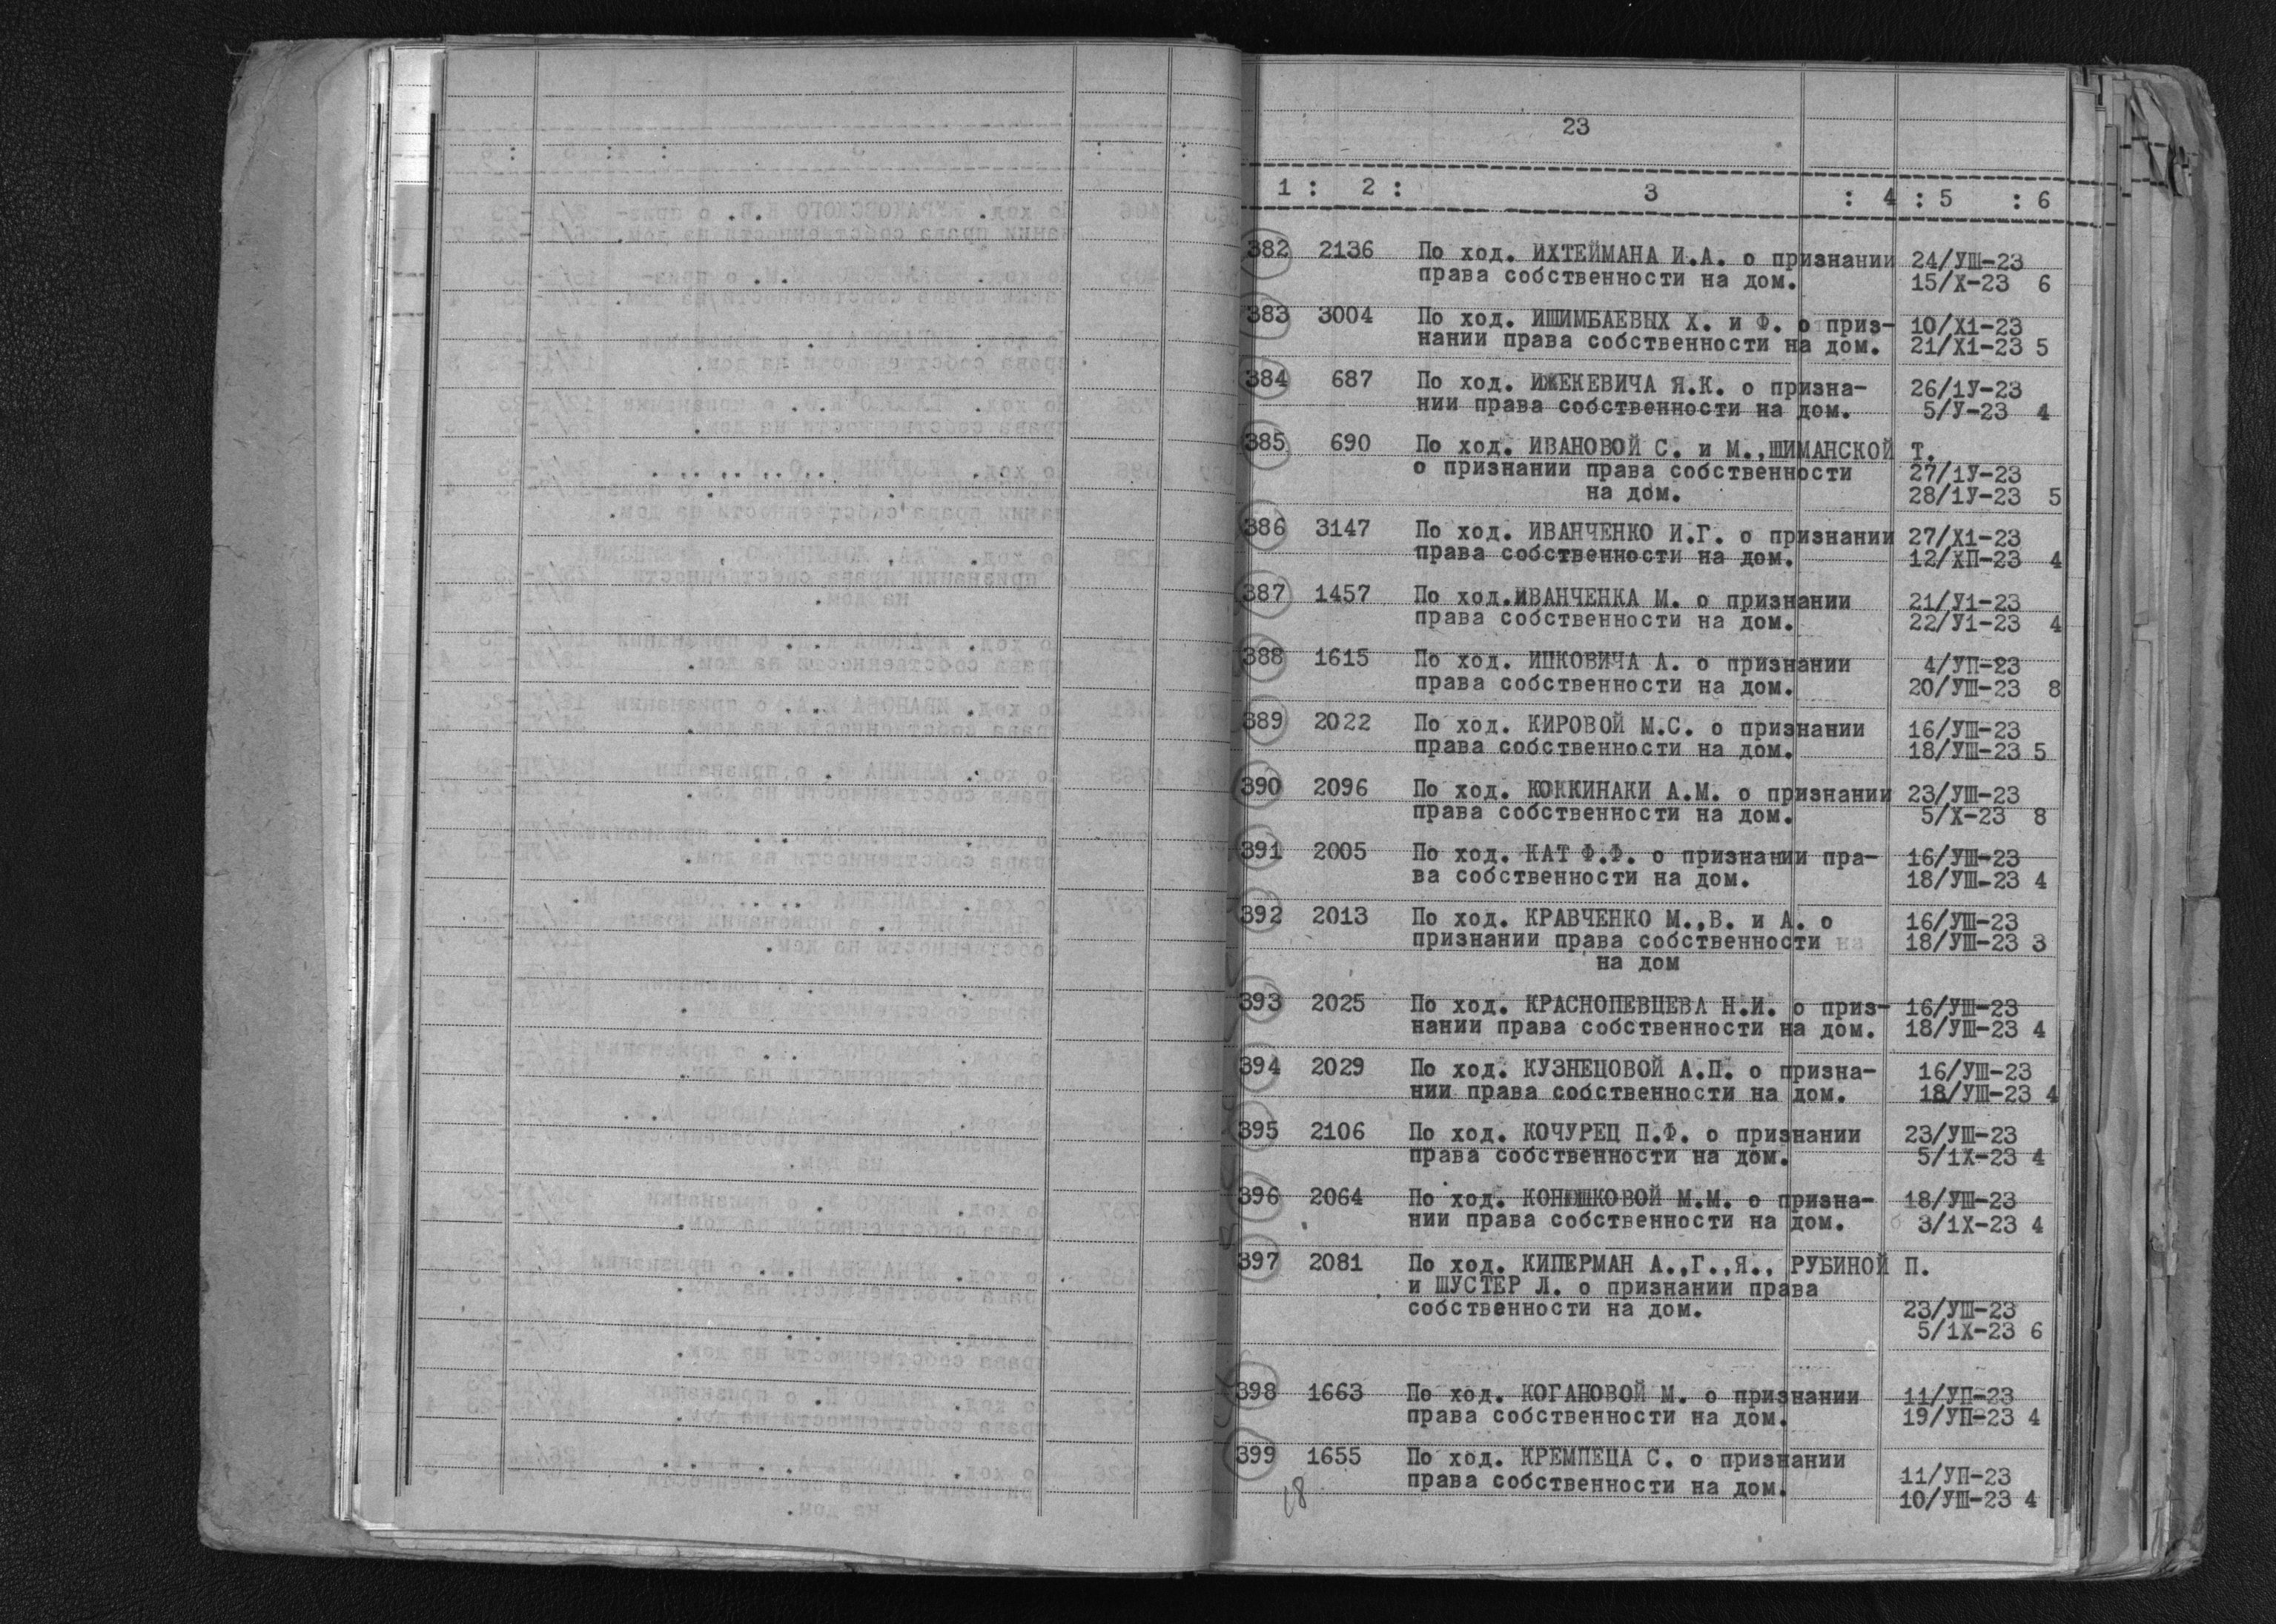 23
1 : 2 : 3 : 4 : 5 : 6
382 2136 По ход. ИХТЕЙМАНА И.А. о признании 24/УШ-23
права собственности на дом. 15/Х-23 6
383 3004 По ход. ИШИМБАЕВЫХ Х. и Ф. о приз- 10/Х1-23
нании права собственности на дом. 21/Х1-23 5
384 687 По ход. ИЖЕКЕВИЧА Я.К. о призна- 26/1У-23
нии права собственности на дом. 5/У-23 4
385 690 По ход. ИВАНОВОЙ С. и М.,ШИМАНСКОЙ Т.
о признании права собственности 27/1У-23
на дом. 28/1У-23 5
386 3147 По ход. ИВАНЧЕНКО И.Г. о признании 27/Х1-23
права собственности на дом. 12/ХП-23 4
387 1457 По ход.ИВАНЧЕНКА М. о признании 21/У1-23
права собственности на дом. 22/У1-23 4
388 1615 По ход. ИЦКОВИЧА А. о признании 4/УП-23
права собственности на дом. 20/УШ-23 8
389 2022 По ход. КИРОВОЙ М.С. о признании 16/УШ-23
права собственности на дом. 18/УШ-23 5
390 2096 По ход. КОККИНАКИ А.М. о признании 23/УШ-23
права собственности на дом. 5/Х-23 8
391 2005 По ход. КАТ Ф.Ф. о признании пра- 16/УШ-23
ва собственности на дом. 18/УШ-23 4
392 2013 По ход. КРАВЧЕНКО М.,В. и А. о 16/УШ-23
признании права собственности на 18/УШ-23 3
на дом
393 2025 По ход. КРАСНОПЕВЦЕВА Н.И. о приз- 16/УШ-23
нании права собственности на дом. 18/УШ-23 4
394 2029 По ход. КУЗНЕЦОВОЙ А.П. о призна- 16/УШ-23
нии права собственности на дом. 18/УШ-23 4
395 2106 По ход. КОЧУРЕЦ П.Ф. о признании 23/УШ-23
права собственности на дом. 5/1Х-23 4
396 2064 По ход. КОНЮШКОВОЙ М.М. о призна- 18/УШ-23
нии права собственности на дом. 3/1Х-23 4
397 2081 По ход. КИПЕРМАН А.,Г.,Я., РУБИНОЙ П.
и ШУСТЕР Л. о признании права
собственности на дом. 23/УШ-23
5/1Х-23 6
398 1663 По ход. КОГАНОВОЙ М. о признании 11/УП-23
права собственности на дом. 19/УП-23 4
399 1655 По ход. КРЕМПЕЦА С. о признании
права собственности на дом. 11/УП-23
10/УШ-23 4
18